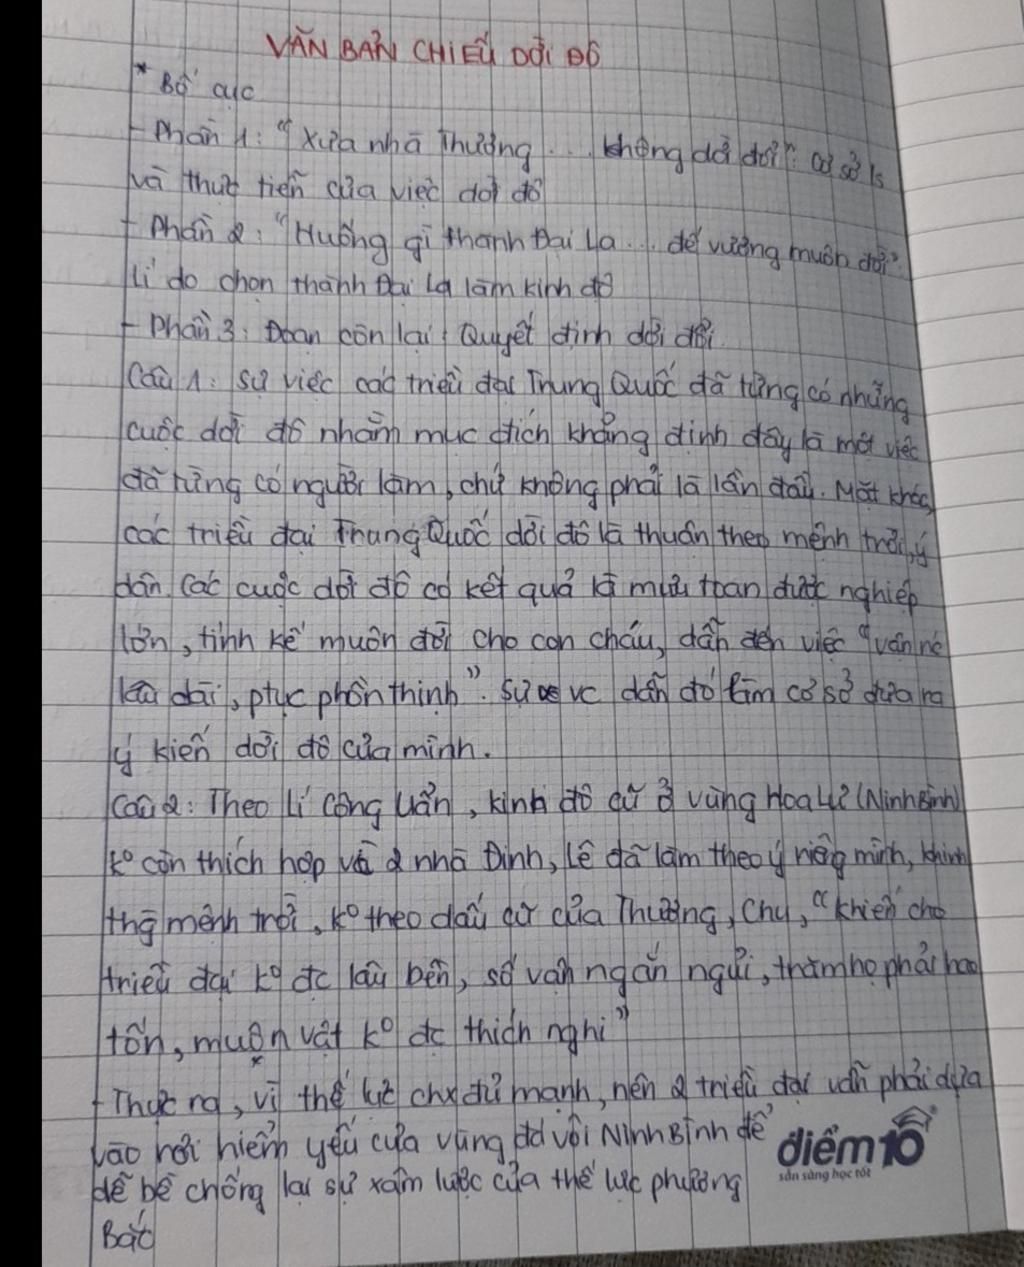 VĂN BẢN CHIẾU DỜI ĐÔ
* Bố cục
- Phần 1: "Xưa nhà Thương ... không dời đổi": Cơ sở ls
và thực tiễn của việc dời đô
- Phần 2: "Huống gì thành Đại La ... đế vương muôn đời":
Lí do chọn thành Đại La làm kinh đô
- Phần 3: Đoạn còn lại: Quyết định dời đổi.
Câu 1: Sự việc các triều đại Trung Quốc đã từng có những
cuộc dời đô nhằm mục đích khẳng định đây là một việc
đã từng có người làm, chứ không phải là lần đầu. Mặt khác,
các triều đại Trung Quốc dời đô là thuận theo mệnh trời, ý
dân. Các cuộc dời đô có kết quả là mưu toan được nghiệp
lớn, tính kế muôn đời cho con cháu, dẫn đến việc "vận nc
lâu dài, ptục phồn thịnh". Sự vc dẫn đó làm cơ sở đưa ra
ý kiến dời đô của mình.
Câu 2: Theo Lí Công Uẩn, kinh đô cũ ở vùng Hoa Lư (Ninh Bình)
ko còn thích hợp vì 2 nhà Đinh, Lê đã làm theo ý riêng mình, khinh
thg mệnh trời, ko theo dấu cũ của Thương, Chu, "khiến cho
triều đại ko đc lâu bền, số vận ngắn ngủi, trăm họ phải hao
tốn, muôn vật ko đc thích nghi"
- Thực ra, vì thế lực chx đủ mạnh, nên 2 triều đại vẫn phải dựa
vào nơi hiểm yếu của vùng đá vôi Ninh Bình để
dễ bề chống lại sự xâm lược của thế lực phương
Bắc
điểm 10
sẵn sàng học tốt